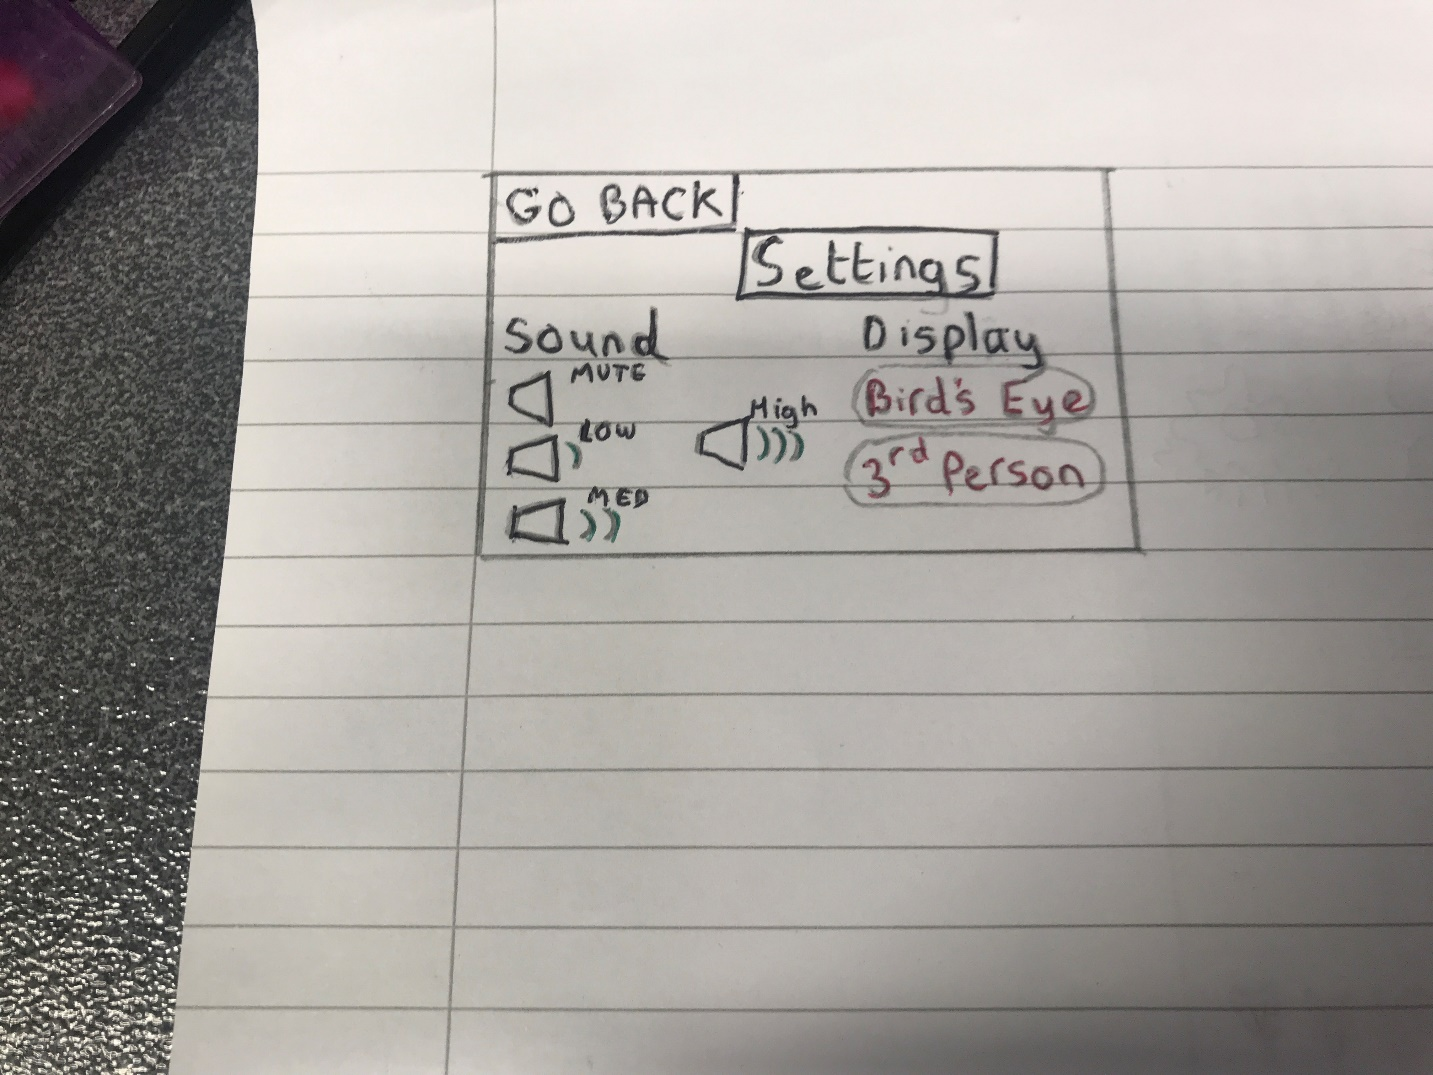 GO BACK
Settings
Sound
MUTE
LOW
MED
High
Display
Bird's Eye
3rd Person